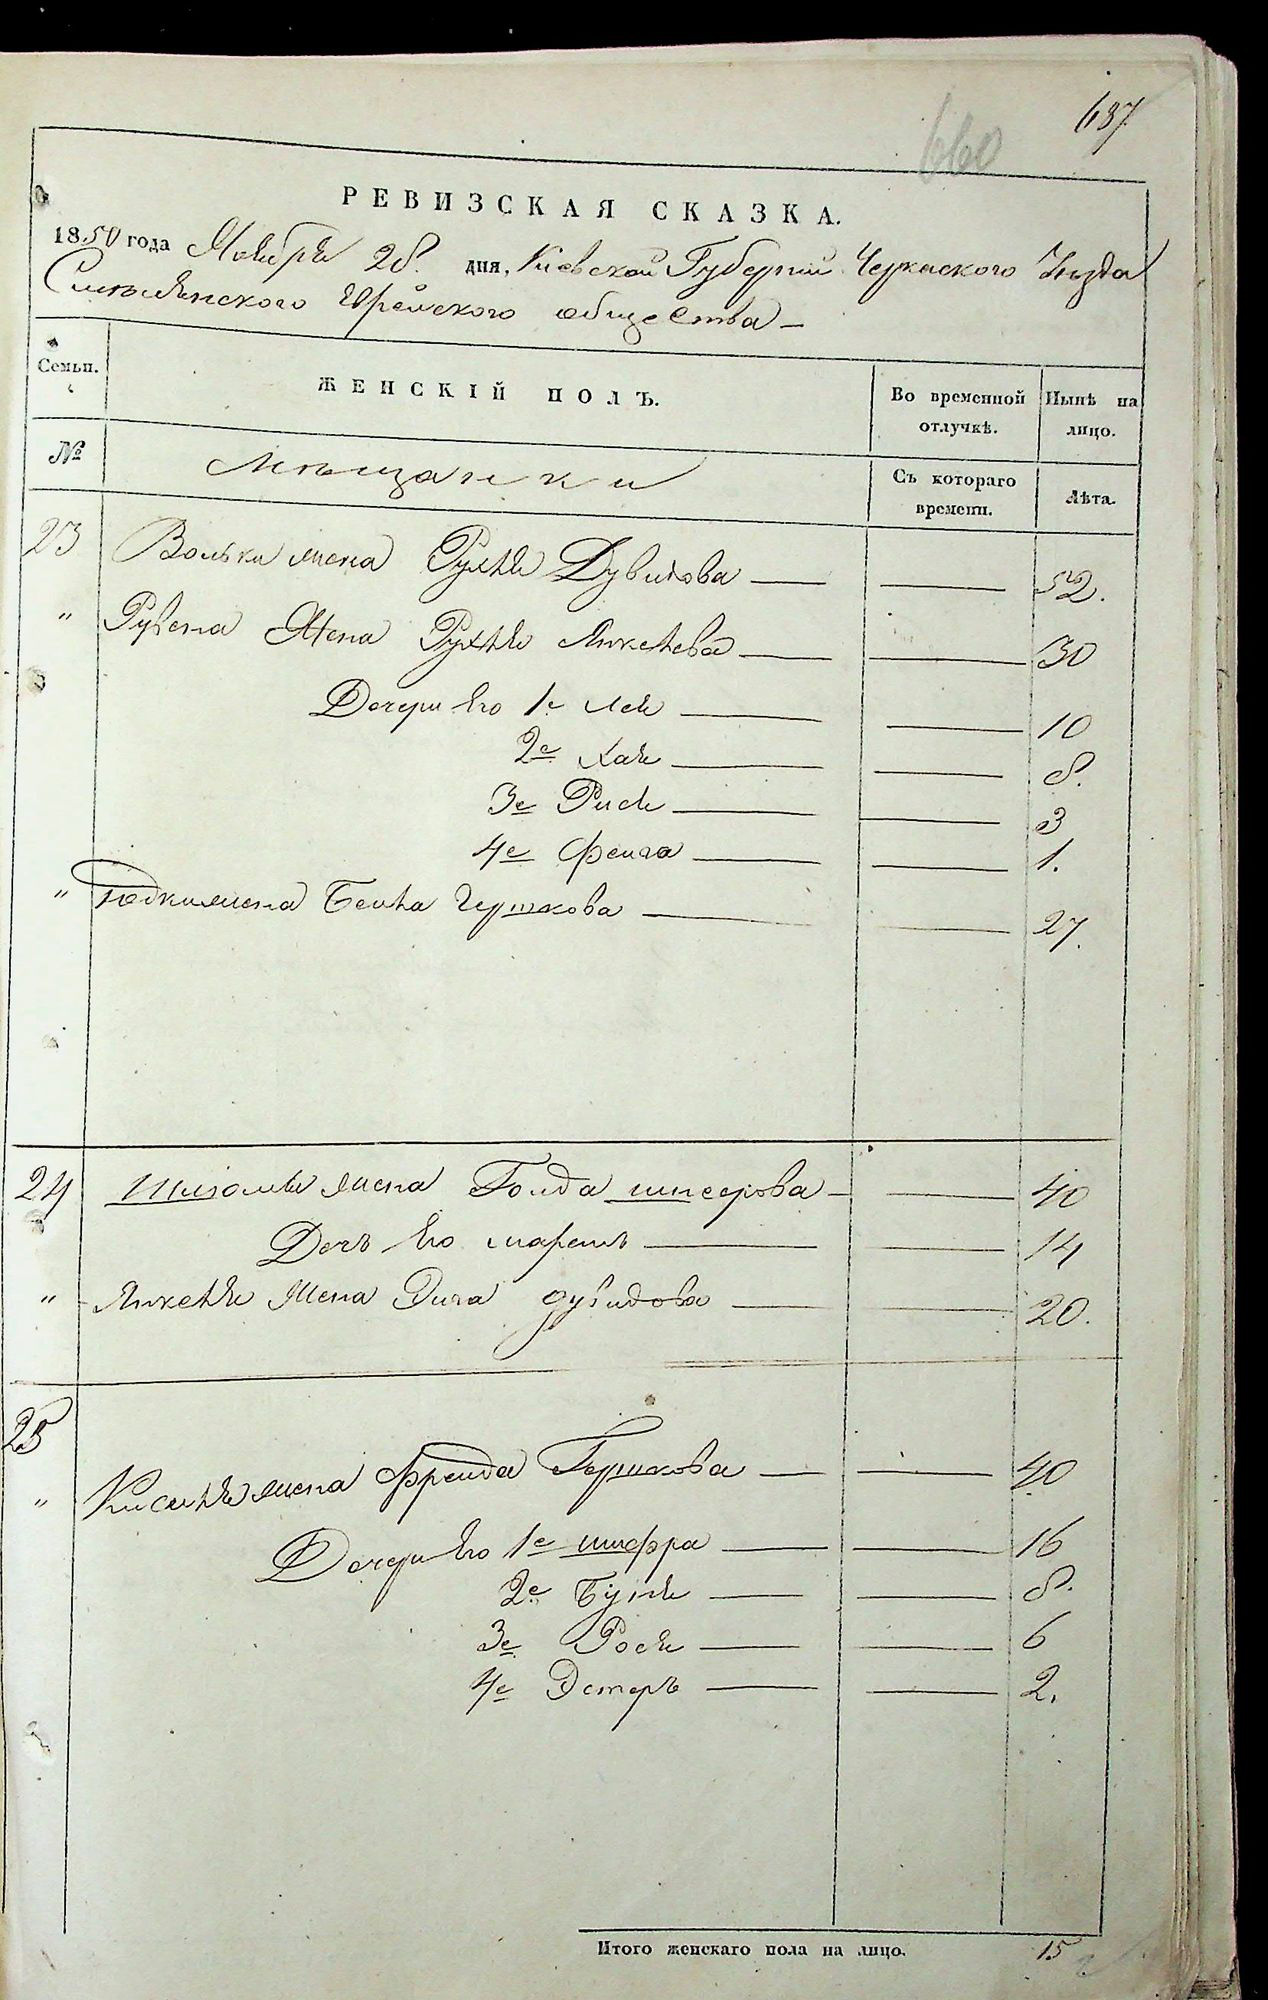 637
660
РЕВИЗСКАЯ СКАЗКА.
1850 года Ноября 28. дня, Киевской Губернии Черкаского Уезда
Смелянского Еврейского общества
Семьи. ЖЕНСКІЙ ПОЛЪ. Во временной отлучкѣ. Нынѣ на лицо.
№ Мещанки Съ котораго времени. Лѣта.
23 Вольки жена Рухля Дувидова 52.
" Рувена Жена Рухля Янкелева 30
Дочери Его 1е Лея 10
2е Хая 8.
3е Рися 3
4е Фейга 1.
" Юдки жена Бейла Гершкова 27.
24 жена Голда 40
Дочь Его 14
" Янкеля Жена Дувидова 20.
25
" жена Фрейда Гершкова 40
Дочери Его 1е Шифра 16
2е 8.
3е Рося 6
4е Эстеръ 2.
Итого женскаго пола на лицо. 15